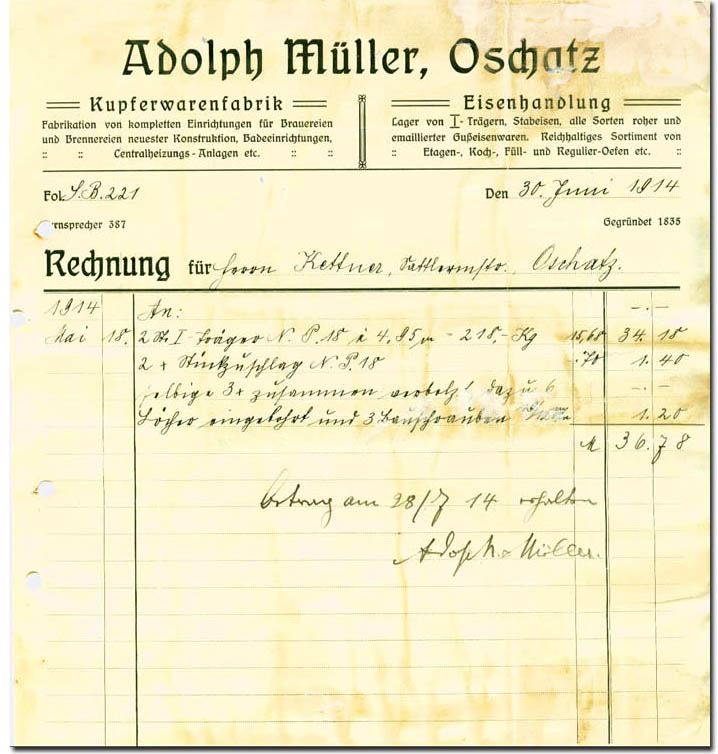 Adolph Müller, Oschatz
Kupferwarenfabrik
Fabrikation von kompletten Einrichtungen für Brauereien
und Brennereien neuester Konstruktion, Badeeinrichtungen,
:: :: Centralheizungs-Anlagen etc. :: ::
Eisenhandlung
Lager von I-Trägern, Stabeisen, alle Sorten roher und
emaillierter Gußeisenwaren. Reichhaltiges Sortiment von
:: Etagen-, Koch-, Füll- und Regulier-Oefen etc. ::
Fol. S.B. 221
Den 30. Juni 1914
ernsprecher 387
Gegründet 1835
Rechnung für Herrn Kettner, Sattlermstr. Oschatz.
1914 An: -.-
Mai 18. 2 St. I-Träger N. P. 18 à 4.95 m - 218,- Kg 15,68 34.18
2 x Stückzuschlag N.P. 18 .70 1.40
selbige 3x zusammen dazu 6 -.-
Löcher eingebohrt und 3 Bauschrauben 1.20
M 36.78
Betrag am 28/7 14 erhalten
Adolph Müller.